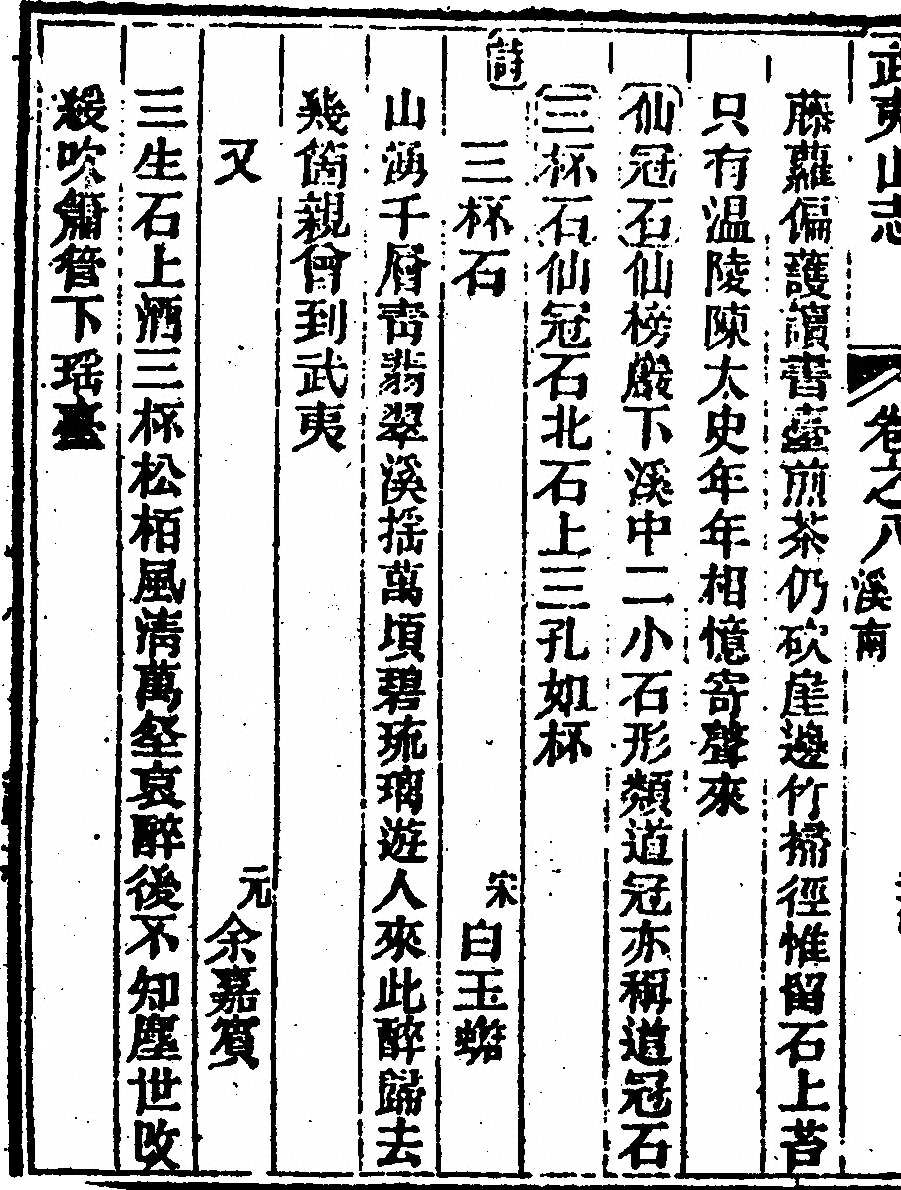 武夷山志 卷之八 溪南
藤蘿偏護讀書臺煎茶仍砍崖邊竹掃徑惟留石上苔
只有温陵陳太史年年相憶寄聲來
仙冠石仙榜巖下溪中二小石形類道冠亦稱道冠石
三杯石仙冠石北石上三孔如杯
詩
三杯石 宋 白玉蟾
山湧千層靑翡翠溪揺萬頃碧琉璃遊人來此醉歸去
幾箇親曾到武夷
又 元 余嘉賓
三生石上酒三杯松栢風清萬壑哀醉後不知塵世改
緩吹簫管下瑶臺